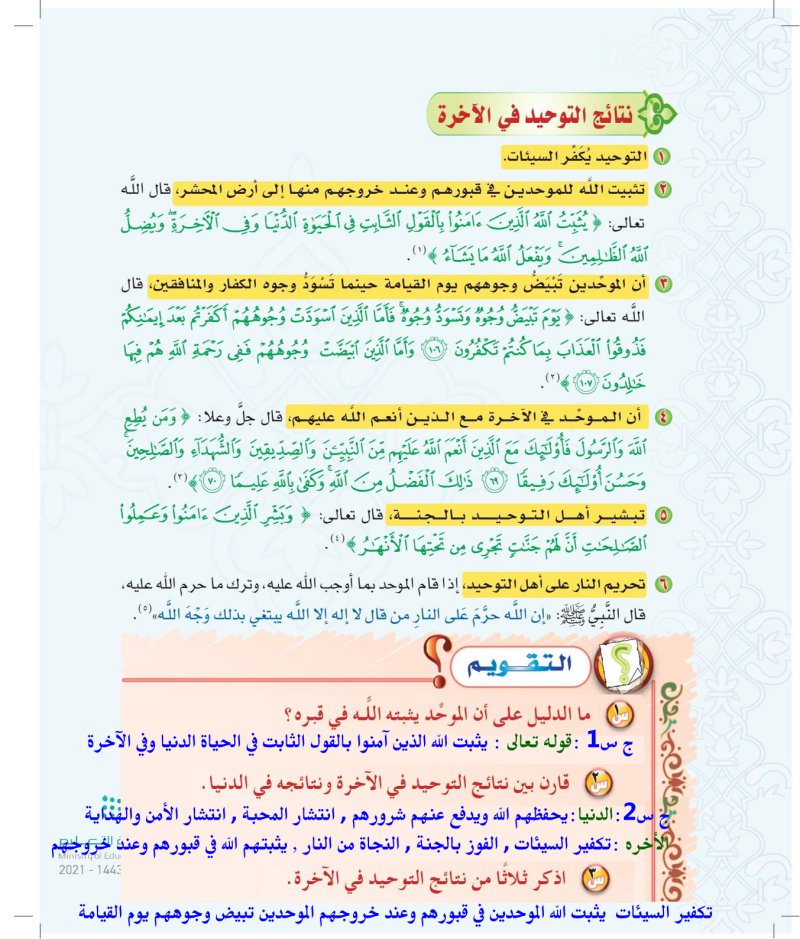 نتائج التوحيد في الآخرة
١ التوحيد يُكَفِّر السيئات.
٢ تثبيت اللَّه للموحدين في قبورهم وعند خروجهم منها إلى أرض المحشر، قال اللَّه
تعالى: ﴿ يُثَبِّتُ ٱللَّهُ ٱلَّذِينَ ءَامَنُوا۟ بِٱلْقَوْلِ ٱلثَّابِتِ فِى ٱلْحَيَوٰةِ ٱلدُّنْيَا وَفِى ٱلْـَٔاخِرَةِ ۖ وَيُضِلُّ
ٱللَّهُ ٱلظَّـٰلِمِينَ ۚ وَيَفْعَلُ ٱللَّهُ مَا يَشَآءُ ﴾(١).
٣ أن الموحِّدين تَبْيَضُّ وجوههم يوم القيامة حينما تَسْوَدُّ وجوه الكفار والمنافقين، قال
اللَّه تعالى: ﴿ يَوْمَ تَبْيَضُّ وُجُوهٌ وَتَسْوَدُّ وُجُوهٌ ۚ فَأَمَّا ٱلَّذِينَ ٱسْوَدَّتْ وُجُوهُهُمْ أَكَفَرْتُم بَعْدَ إِيمَـٰنِكُمْ
فَذُوقُوا۟ ٱلْعَذَابَ بِمَا كُنتُمْ تَكْفُرُونَ ١٠٦ وَأَمَّا ٱلَّذِينَ ٱبْيَضَّتْ وُجُوهُهُمْ فَفِى رَحْمَةِ ٱللَّهِ هُمْ فِيهَا
خَـٰلِدُونَ ١٠٧ ﴾(٢).
٤ أن الموحِّد في الآخرة مع الذين أنعم اللَّه عليهم، قال جلَّ وعلا: ﴿ وَمَن يُطِعِ
ٱللَّهَ وَٱلرَّسُولَ فَأُو۟لَـٰٓئِكَ مَعَ ٱلَّذِينَ أَنْعَمَ ٱللَّهُ عَلَيْهِم مِّنَ ٱلنَّبِيِّـۧنَ وَٱلصِّدِّيقِينَ وَٱلشُّهَدَآءِ وَٱلصَّـٰلِحِينَ ۚ
وَحَسُنَ أُو۟لَـٰٓئِكَ رَفِيقًا ٦٩ ذَٰلِكَ ٱلْفَضْلُ مِنَ ٱللَّهِ ۚ وَكَفَىٰ بِٱللَّهِ عَلِيمًا ٧٠ ﴾(٣).
٥ تبشير أهل التوحيد بالجنة، قال تعالى: ﴿ وَبَشِّرِ ٱلَّذِينَ ءَامَنُوا۟ وَعَمِلُوا۟
ٱلصَّـٰلِحَـٰتِ أَنَّ لَهُمْ جَنَّـٰتٍ تَجْرِى مِن تَحْتِهَا ٱلْأَنْهَـٰرُ ﴾(٤).
٦ تحريم النار على أهل التوحيد، إذا قام الموحد بما أوجب اللَّه عليه، وترك ما حرم اللَّه عليه،
قال النَّبِيُّ ﷺ: «إن اللَّه حرَّمَ عَلى النارِ من قال لا إله إلا اللَّه يبتغي بذلك وَجْهَ اللَّه»(٥).
التقويم
س١ ما الدليل على أن الموحِّد يثبته اللَّه في قبره؟
ج س1 :قوله تعالى : يثبت الله الذين آمنوا بالقول الثابت في الحياة الدنيا وفي الآخرة
س٢ قارن بين نتائج التوحيد في الآخرة ونتائجه في الدنيا.
ج س2:الدنيا:يحفظهم الله ويدفع عنهم شرورهم , انتشار المحبة , انتشار الأمن والهداية
الأخره :تكفير السيئات , الفوز بالجنة , النجاة من النار , يثبتهم الله في قبورهم وعند خروجهم
2021 - 1443
س٣ اذكر ثلاثًا من نتائج التوحيد في الآخرة.
تكفير السيئات يثبت الله الموحدين في قبورهم وعند خروجهم الموحدين تبيض وجوههم يوم القيامة